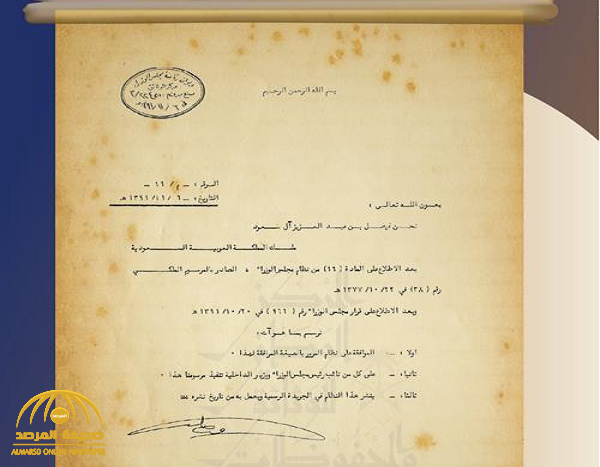 ديوان رئاسة مجلس الوزراء
بسم الله الرحمن الرحيم
الرقم : م / ١٦
التاريخ : ٦ / ١١ / ١٣٩١ هـ
بعون الله تعالى :
نحن فيصل بن عبد العزيز آل سعود
ملك المملكة العربية السعودية
بعد الاطلاع على المادة (١٩) من نظام مجلس الوزراء ، الصادر بالمرسوم الملكي
رقم (٣٨) في ٢٢ / ١٠ / ١٣٧٧ هـ
وبعد الاطلاع على قرار مجلس الوزراء رقم (٩٦٦) في ٢٠ / ١٠ / ١٣٩١ هـ
نرسم بما هو آت :
اولا : — الموافقة على نظام المرور بالصيغة المرافقة لهذا ٠
ثانيا : — على كل من نائب رئيس مجلس الوزراء ووزير الداخلية تنفيذ مرسومنا هذا ٠
ثالثا : — ينشر هذا النظام في الجريدة الرسمية ويعمل به من تاريخ نشره
صحيفة المرصد
ALMARSD ONLINE NEWSPAPER